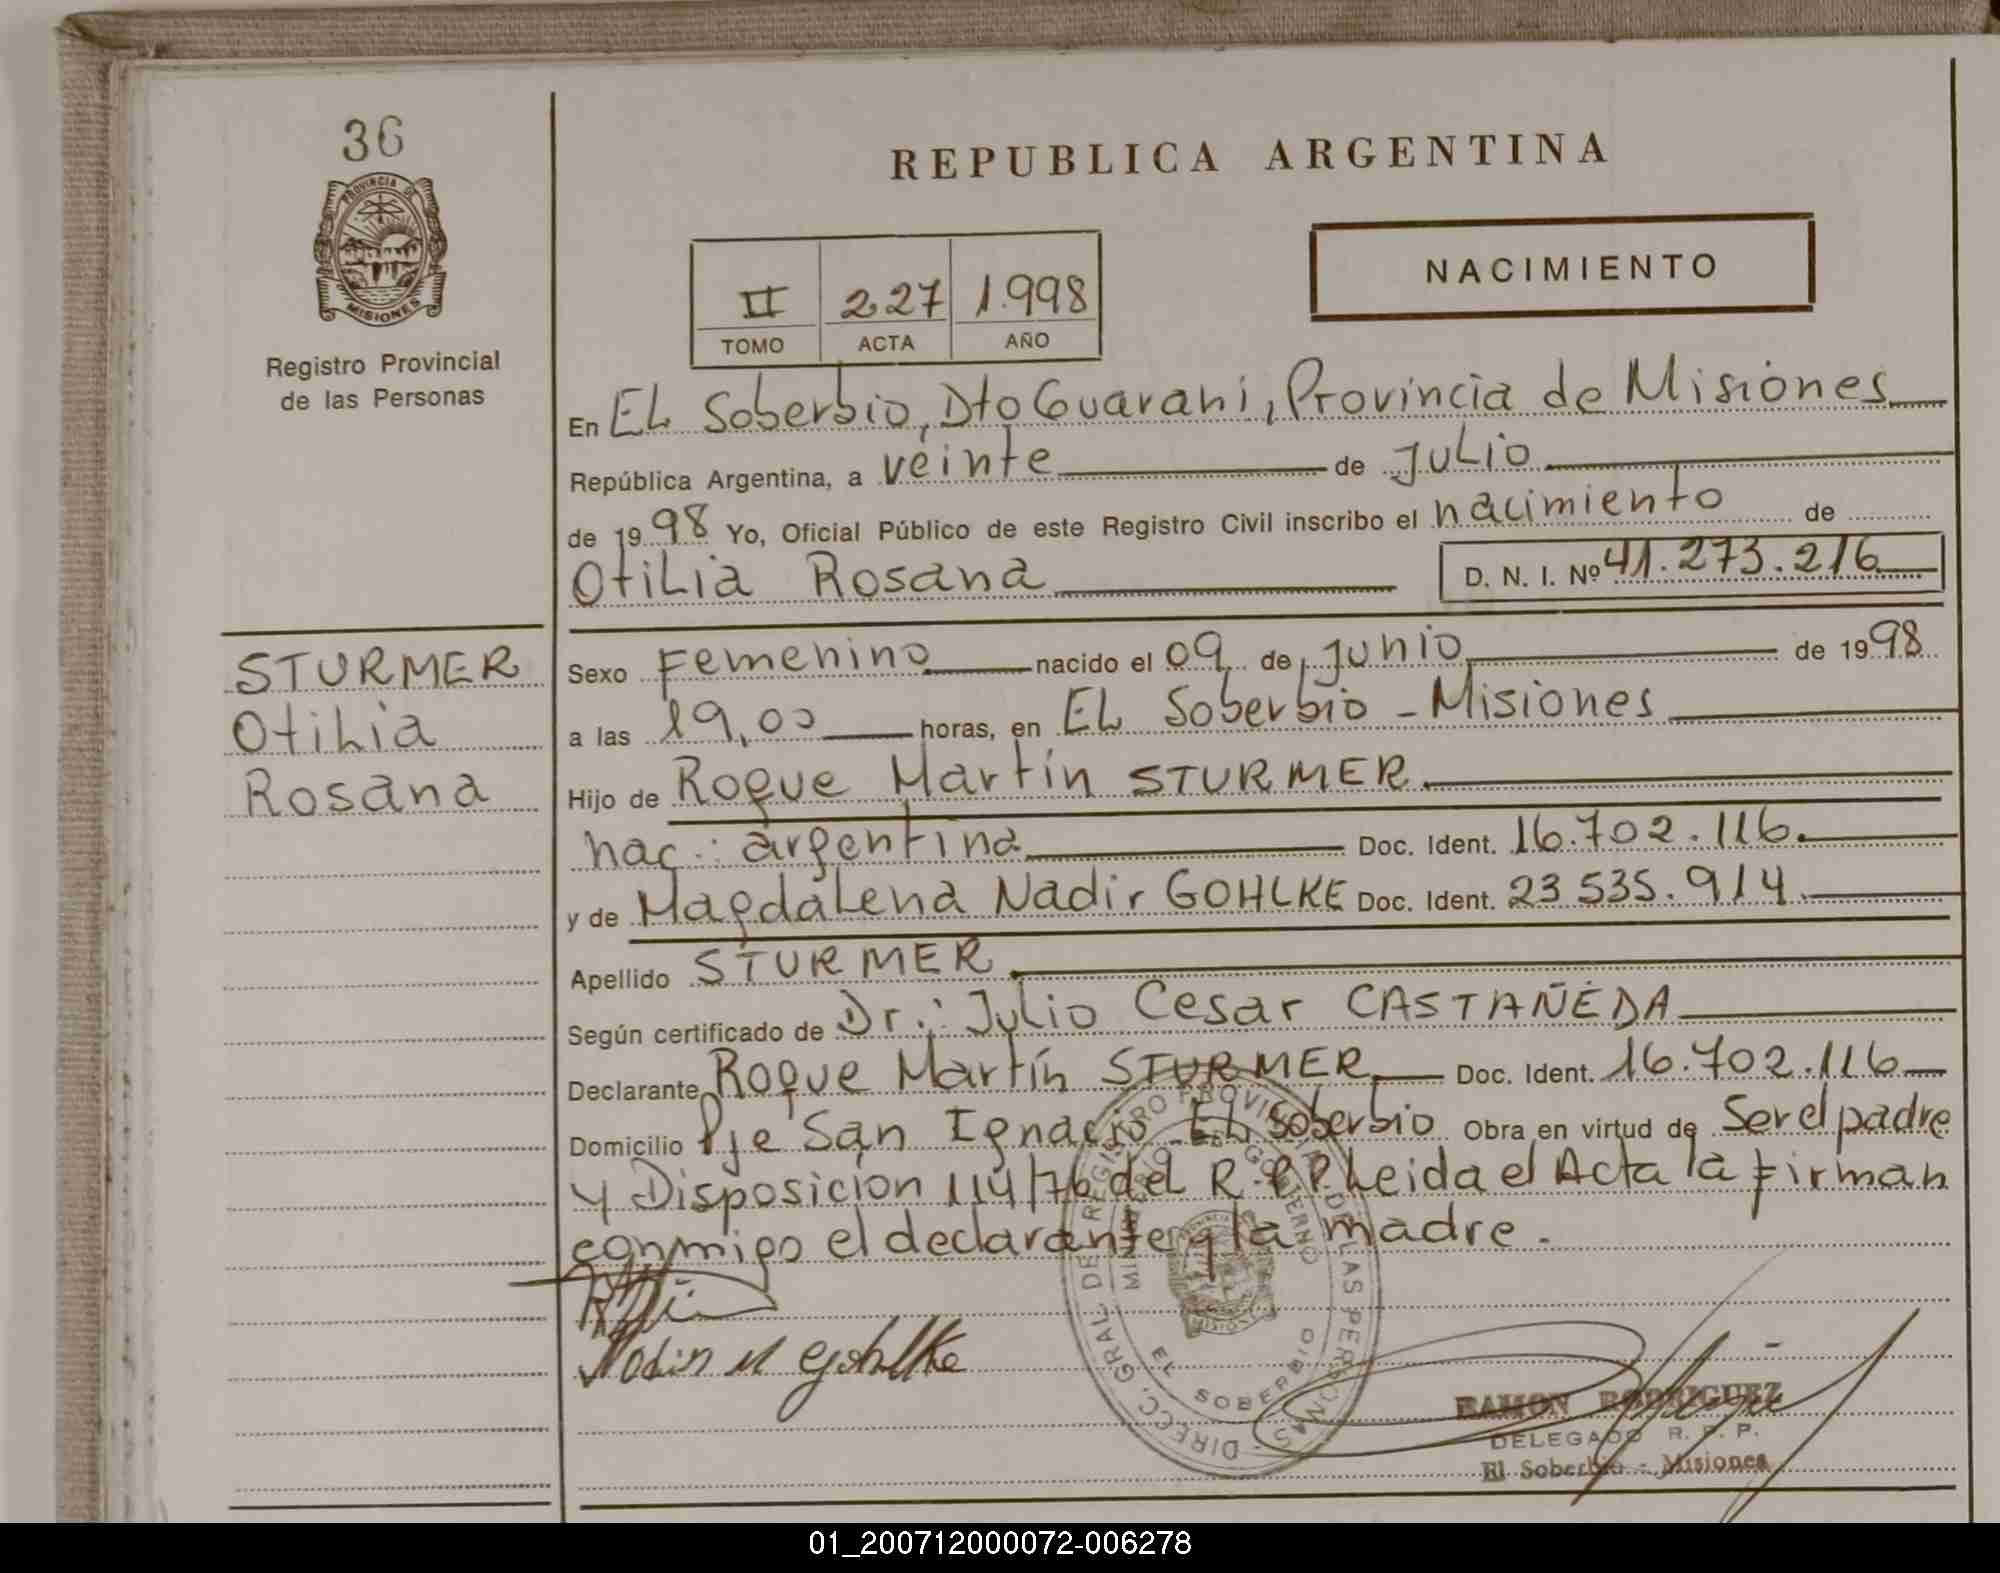 36
PROVINCIA DE
MISIONES
Registro Provincial
de las Personas
STURMER
Otilia
Rosana
REPUBLICA ARGENTINA
II 227 1.998
TOMO ACTA AÑO
NACIMIENTO
En EL Soberbio, Dto Guarani, Provincia de Misiones
República Argentina, a veinte de Julio
de 1998 Yo, Oficial Público de este Registro Civil inscribo el nacimiento de
Otilia Rosana D. N. I. Nº 41.273.216
Sexo Femenino nacido el 09 de Junio de 1998
a las 19,00 horas, en EL Soberbio - Misiones
Hijo de Roque Martín STURMER
nac.: argentina Doc. Ident. 16.702.116.
y de Magdalena Nadir GOHLKE Doc. Ident. 23.535.914.
Apellido STURMER
Según certificado de Dr.: Julio Cesar CASTAÑEDA
Declarante Roque Martín STURMER Doc. Ident. 16.702.116
Domicilio Pje San Ignacio EL Soberbio Obra en virtud de Ser el padre
y Disposición 114/76 del R.P.P. Leida el Acta la firman
conmigo el declarante y la madre.
Nadir M Gohlke
DIRECC. GRAL. DE REGISTRO PROVINCIAL DE LAS PERSONAS
MINISTERIO DE GOBIERNO
EL SOBERBIO
MISIONES
RAMON RODRIGUEZ
DELEGADO R. P. P.
El Soberbio - Misiones
01_200712000072-006278